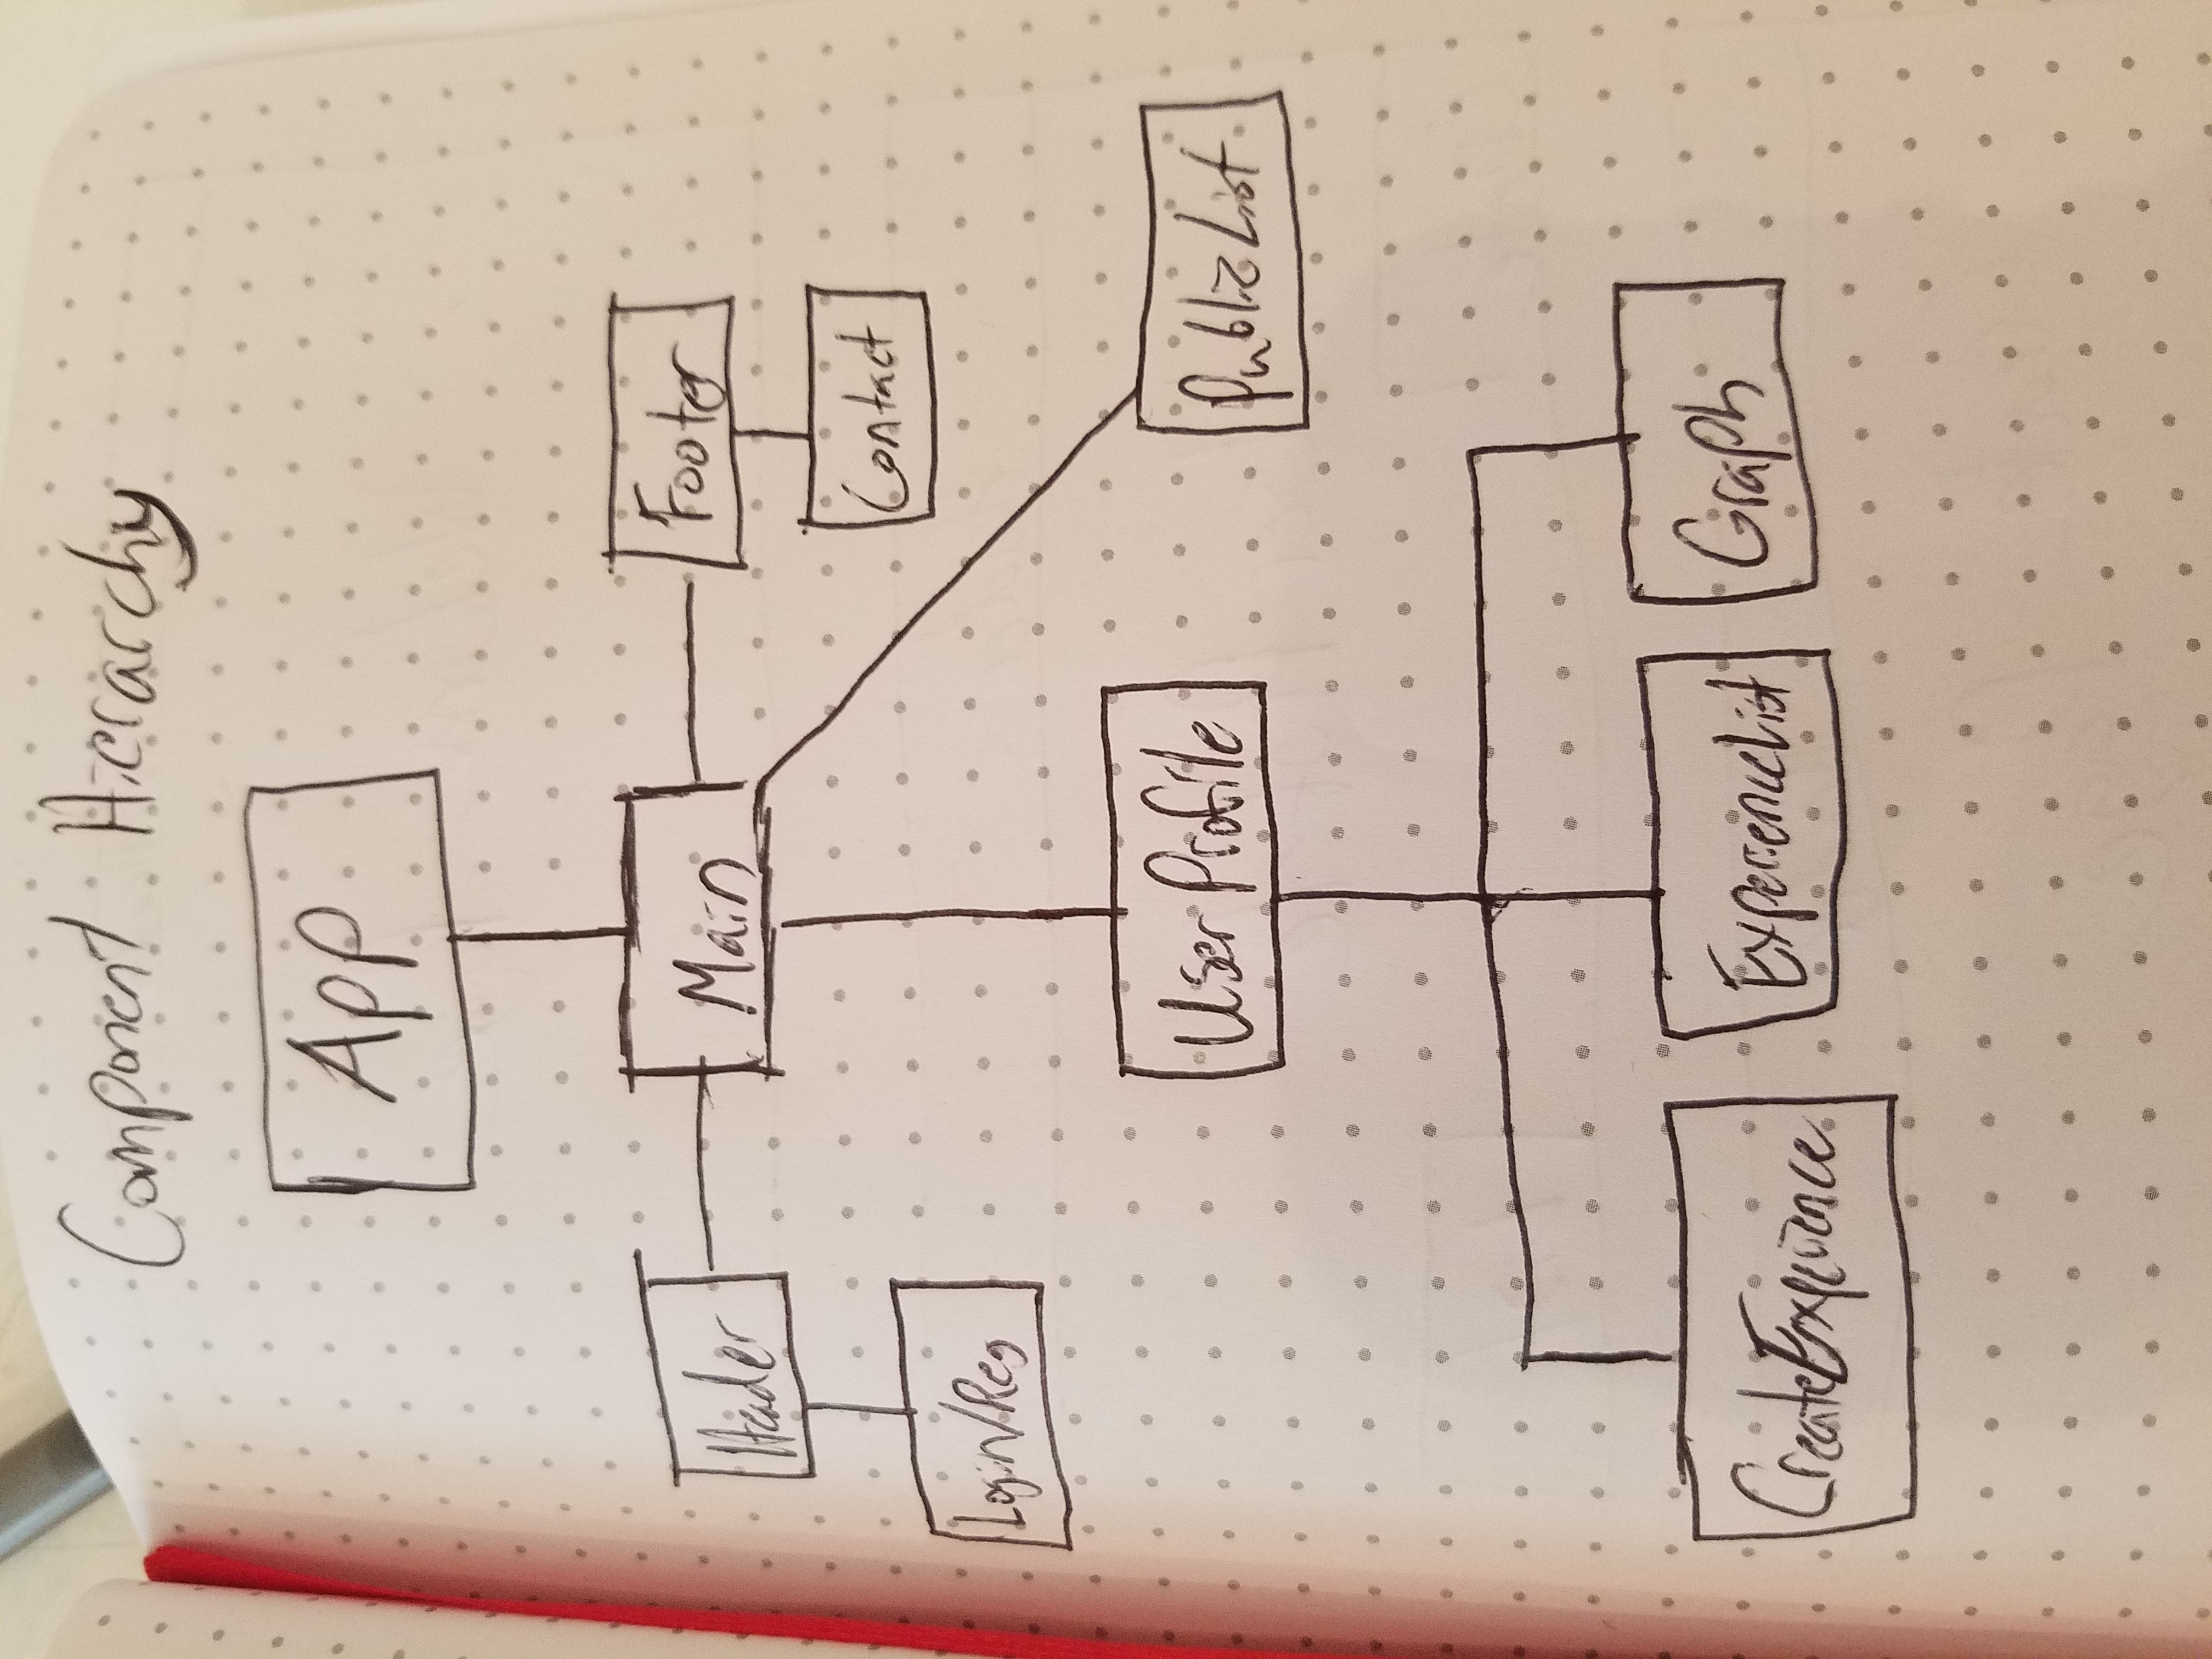 Component Hierarchy
App
Header
Main
Footer
Contact
Login/Reg
User Profile
Public List
CreateExperience
ExperienceList
Graph